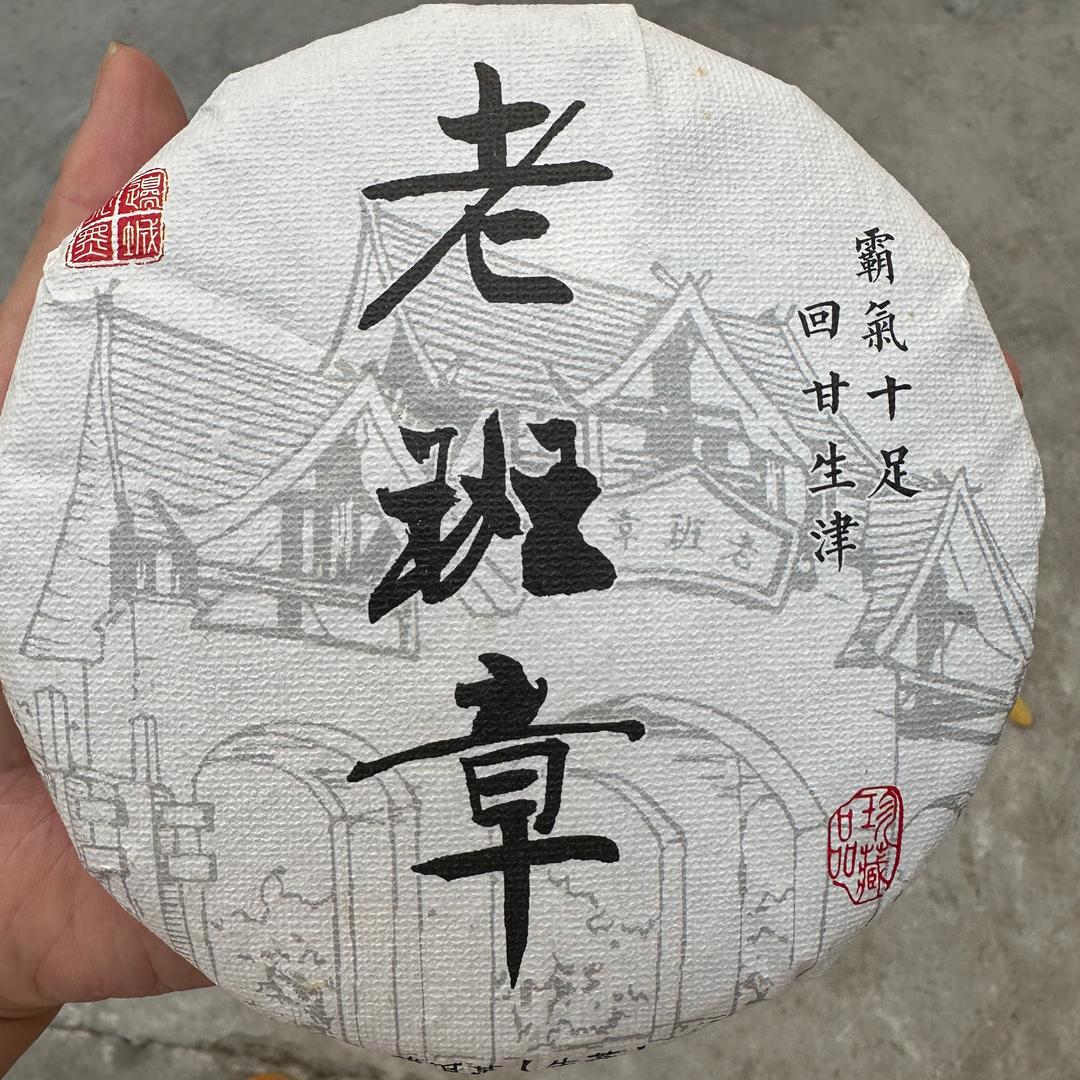 老班章
霸氣十足
回甘生津
老班章
珍藏品